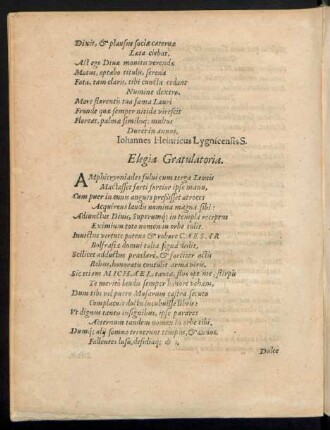 Dixit, & plausus sociæ catervæ
Læta ciebat.
Ast ego Divæ monitu verendæ
Motus, optabo titulis, serena
Fata, tam claris, tibi cuncta cedant
Numine dextro.
More florentis tua fama Lauri
Fronde quæ semper nitida virescit
Floreat, palmæ similisq; multos
Duret in annos.
Iohannes Heinricus Lygnicensis S.
Elegia Gratulatoria.
AMphitryoniades fului cum terga Leonis
Mactasset forti fortior ipse manu,
Cum puer in angues pressisset atroces
Acquirens laudis nomina magna sibi:
Adiunctus Divis, supremumq; in templa receptus
Eximium toto nomen in orbe tulit.
Invictus virtute potens & robore CAESAR
domui talia signa dedit,
Scilicet adductus præclari, & fortiter actis
Rebus, honoratis contulit arma viris.
Sic etiam MICHAEL
Te meritò laudis semper honore
Dum tibi vel puero Musarum castra secuto
Complacuit doctis incubuisse libris:
Ut dignum tantis insignibus, ipse parares
Aeternum tandem nomen in orbe tibi,
Dumq; alij somno tererent tempus, &
Fallentes lusu, desidiaq;
Dulce